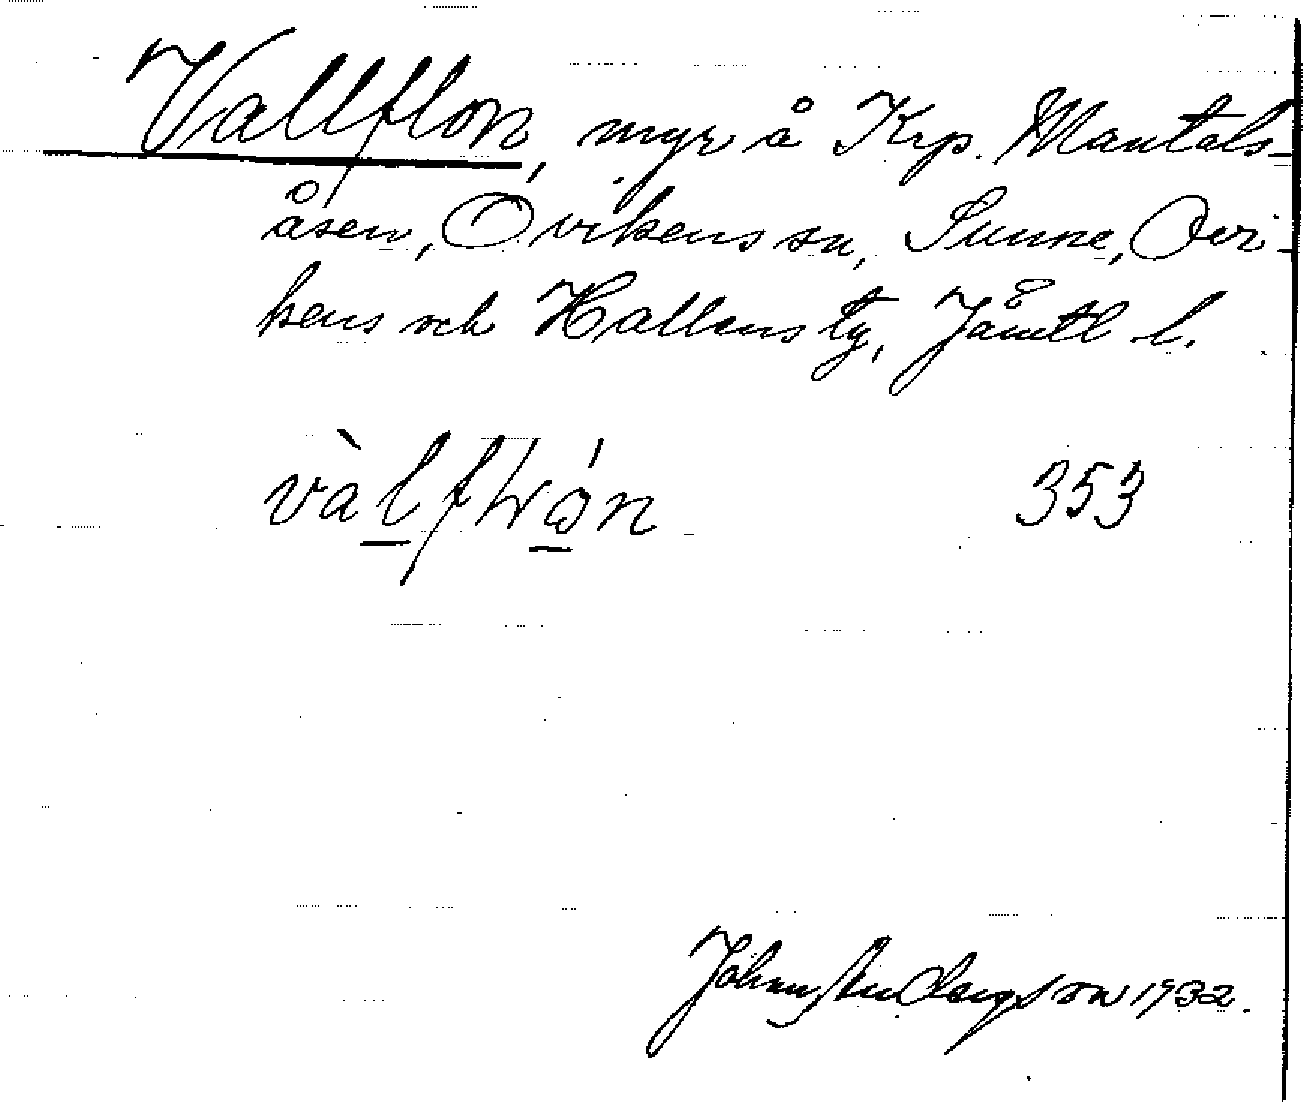 Vallflon, myr å Krp. Mantals-
åsen, Ovikens sn, Sunne, Ovi-
kens och Hallens tg, Jämtl l.
vàlfłʋón 353
Johan Andersson 1932.